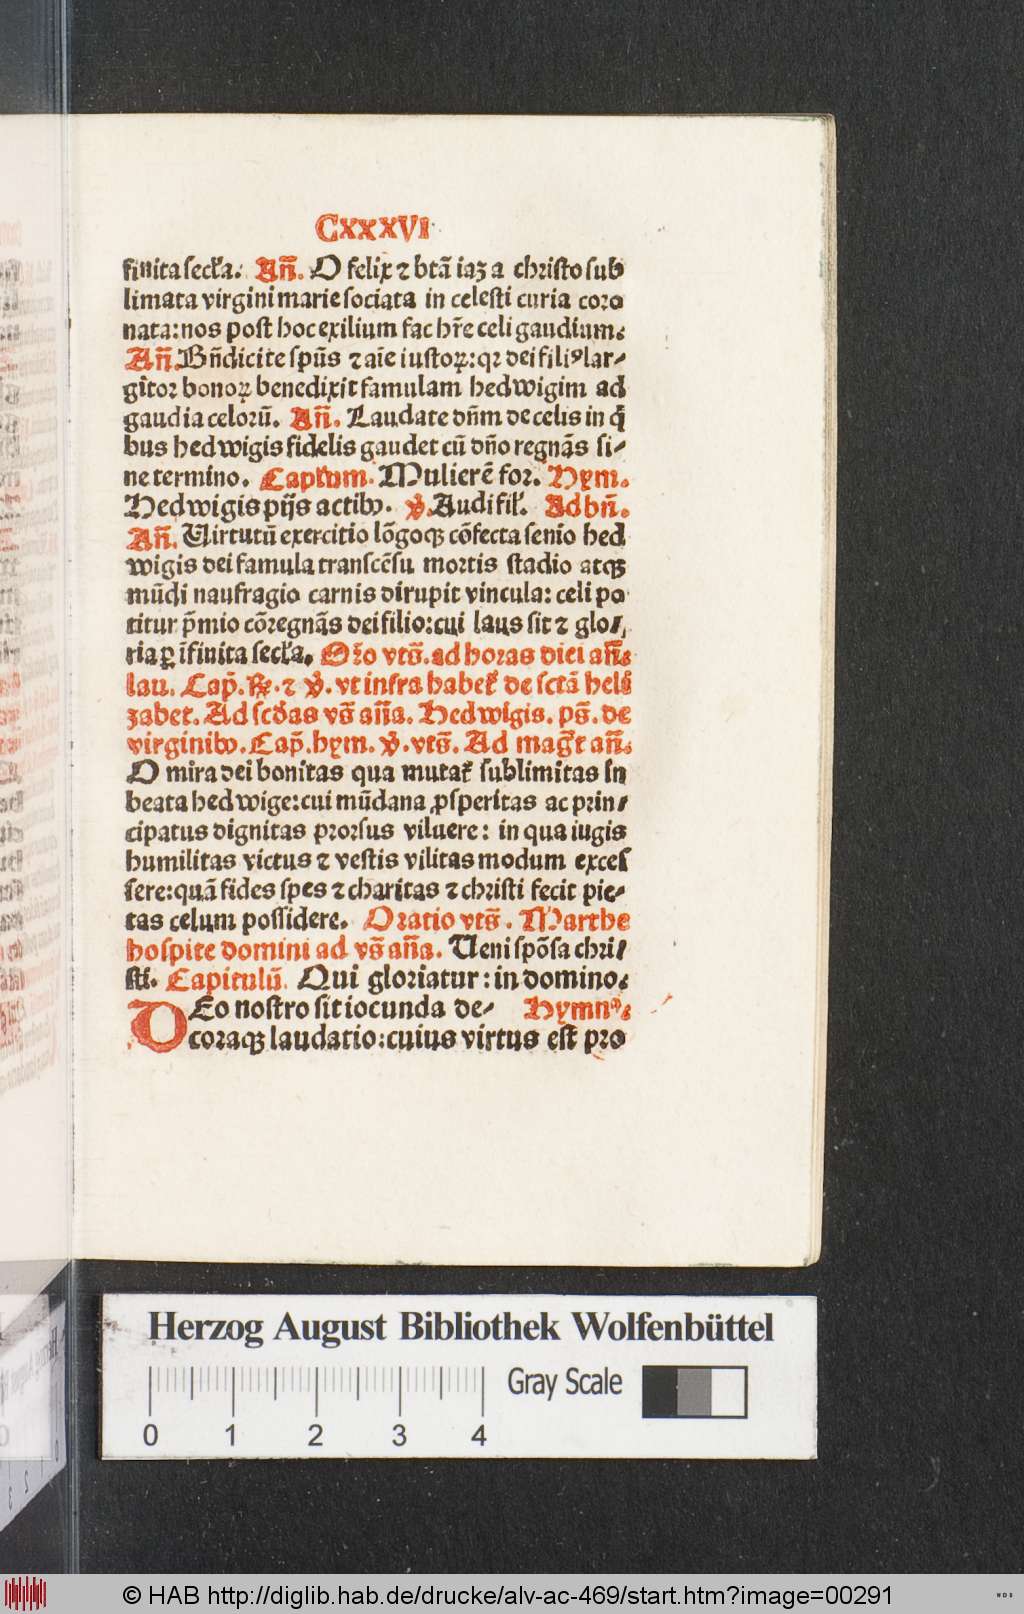 CxxxVI
finita secl'a. Añ. O felix ⁊ btã iaʒ a christo sub
limata virgini marie sociata in celesti curia coro
nata: nos post hoc exilium fac hr̃e celi gaudium.
Añ. Bñdicite spũs ⁊ aĩe iustoꝝ: qꝛ dei filiꝰ lar⸗
gitor bonoꝝ benedixit famulam hedwigim ad
gaudia celorũ. Añ. Laudate dñm de celis in q̃
bus hedwigis fidelis gaudet cũ dño regnãs si⸗
ne termino. Capl'um. Mulierẽ for. Hym.
Hedwigis pijs actibꝰ. ℣. Audi fil'. Ad bñ.
Añ. Uirtutũ exercitio lõgoqꝫ cõfecta senio hed
wigis dei famula transcẽsu mortis stadio atqꝫ
mũdi naufragio carnis dirupit vincula: celi po
titur p̃mio cõregnãs dei filio: cui laus sit ⁊ glo⸗
ria ꝑ ĩfinita secl'a. Oro vts̃. ad horas diei añ.
lau. Cap̃. ℟. ⁊ ℣. vt infra habet' de sctã heli
zabet. Ad scd'as vs̃ aña. Hedwigis. ps̃. de
virginibꝰ. Cap̃. hym. ℣. vts̃. Ad mag̃t añ.
O mira dei bonitas qua mutat' sublimitas in
beata hedwige: cui mũdana ꝓsperitas ac prin⸗
cipatus dignitas prorsus viluere: in qua iugis
humilitas victus ⁊ vestis vilitas modum exces
sere: quã fides spes ⁊ charitas ⁊ christi fecit pie⸗
tas celum possidere. Oratio vts̃. Marthe
hospite domini ad vs̃ aña. Ueni spõsa chri⸗
sti. Capitulũ. Qui gloriatur: in domino.
DEo nostro sit iocunda de⸗ Hymnꝰ.
coraqꝫ laudatio: cuius virtus est pro
Herzog August Bibliothek Wolfenbüttel
Gray Scale
0 1 2 3 4
© HAB http://diglib.hab.de/drucke/alv-ac-469/start.htm?image=00291